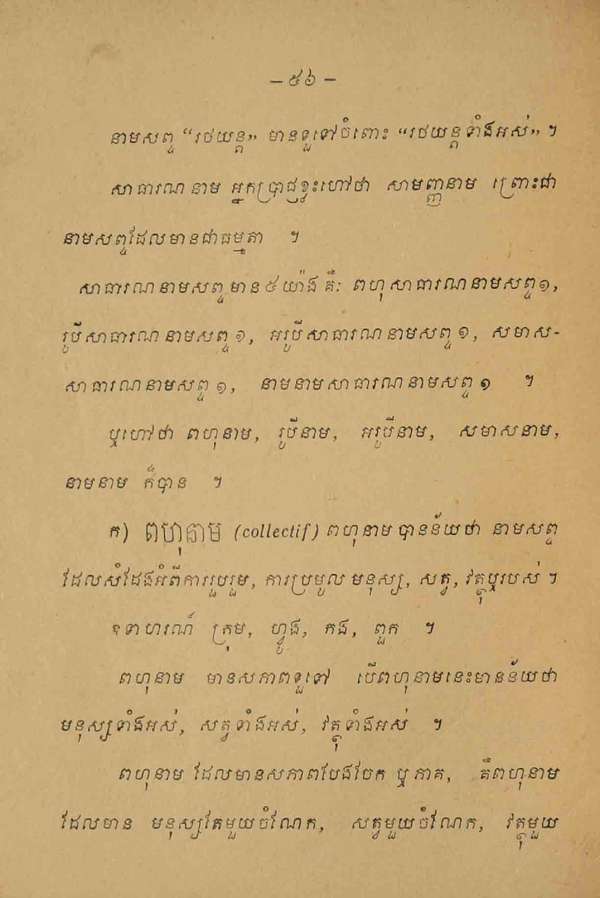 – ៥៦ –
នាមសព្ទ “រថយន្ត» មានទូទៅចំពោះ “រថយន្តទាំងអស់» ។
សាធារណនាម អ្នកប្រាជ្ញខ្លះហៅថា សាមញ្ញនាម ព្រោះជា
នាមសព្ទដែលមានជាធម្មតា ។
សាធារណនាមសព្ទមាន ៥ យ៉ាង គឺៈ ពហុសាធារណនាមសព្ទ ១,
រូបីសាធារណនាមសព្ទ ១, អរូបីសាធារណនាមសព្ទ ១, សមាស-
សាធារណនាមសព្ទ ១, នាមនាមសាធារណនាមសព្ទ ១ ។
ឬហៅថា ពហុនាម, រូបីនាម, អរូបីនាម, សមាសនាម,
នាមនាម ក៏បាន ។
ក) ពហុនាម (collectif) ពហុនាម បានន័យថា នាមសព្ទ
ដែលសំដែងអំពីការរួបរួម, ការប្រមូល មនុស្ស, សត្វ, វត្ថុឬរបស់ ។
ឧទាហរណ៍ ក្រុម, ហ្វូង, កង, ពួក ។
ពហុនាម មានសភាពទូទៅ បើពហុនាមនេះមានន័យថា
មនុស្សទាំងអស់, សត្វទាំងអស់, វត្ថុទាំងអស់ ។
ពហុនាម ដែលមានសភាពបែងចែក ឬ ភាគ, គឺពហុនាម
ដែលមាន មនុស្សតែមួយចំណែក, សត្វមួយចំណែក, វត្ថុមួយ